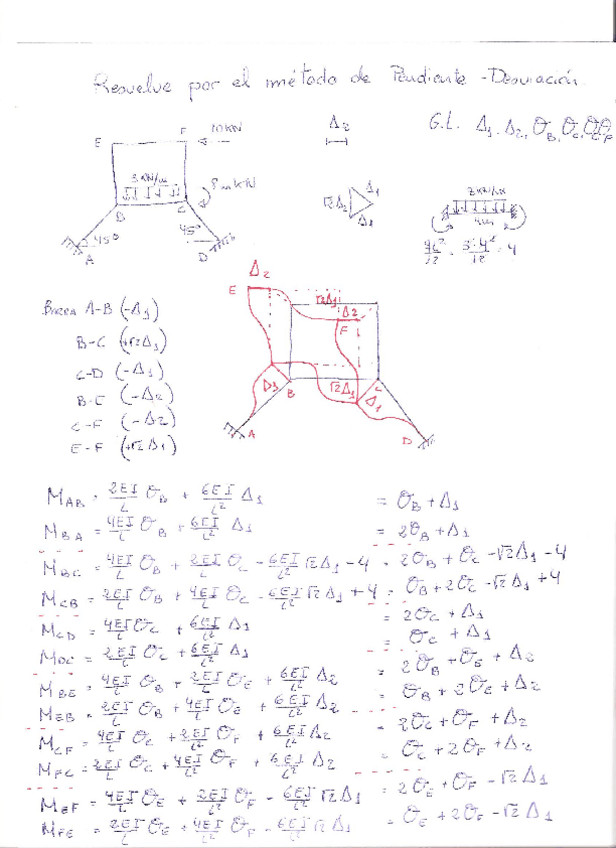 Resuelve por el método de Pendiente-Desviación
G.L. Δ1, Δ2, θB, θC, θE, θF
E F 10 KN
Δ2
3 KN/m
8 m KN
B C
45° 45°
A D
√2Δ1 Δ1
Δ1
3 KN/m
4m
qL²/12 = 3·4²/12 = 4
Δ2
E √2Δ1
Δ2
F
Δ1 B √2Δ1 C
Δ1
A D
Barra A-B (-Δ1)
B-C (+√2Δ1)
C-D (-Δ1)
B-E (-Δ2)
C-F (-Δ2)
E-F (+√2Δ1)
MAB = 2EI/L θB + 6EI/L² Δ1 = θB + Δ1
MBA = 4EI/L θB + 6EI/L² Δ1 = 2θB + Δ1
MBC = 4EI/L θB + 2EI/L θC - 6EI/L² √2Δ1 - 4 = 2θB + θC - √2Δ1 - 4
MCB = 2EI/L θB + 4EI/L θC - 6EI/L² √2Δ1 + 4 = θB + 2θC - √2Δ1 + 4
MCD = 4EI/L θC + 6EI/L² Δ1 = 2θC + Δ1
MDC = 2EI/L θC + 6EI/L² Δ1 = θC + Δ1
MBE = 4EI/L θB + 2EI/L θE + 6EI/L² Δ2 = 2θB + θE + Δ2
MEB = 2EI/L θB + 4EI/L θE + 6EI/L² Δ2 = θB + 2θE + Δ2
MCF = 4EI/L θC + 2EI/L θF + 6EI/L² Δ2 = 2θC + θF + Δ2
MFC = 2EI/L θC + 4EI/L θF + 6EI/L² Δ2 = θC + 2θF + Δ2
MEF = 4EI/L θE + 2EI/L θF - 6EI/L² √2Δ1 = 2θE + θF - √2Δ1
MFE = 2EI/L θE + 4EI/L θF - 6EI/L² √2Δ1 = θE + 2θF - √2Δ1